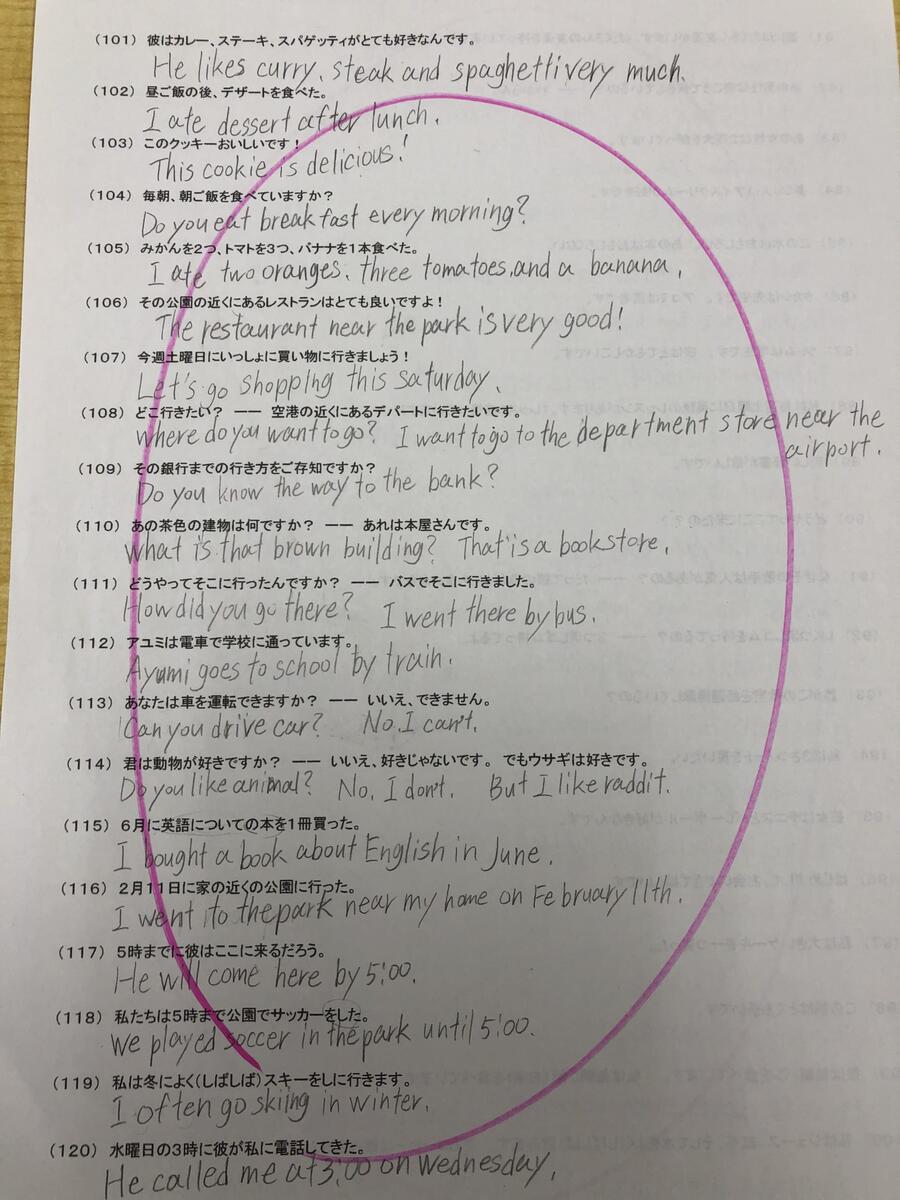 (101) 彼はカレー、ステーキ、スパゲッティがとても好きなんです。
He likes curry, steak and spaghetti very much.
(102) 昼ご飯の後、デザートを食べた。
I ate dessert after lunch.
(103) このクッキーおいしいです！
This cookie is delicious!
(104) 毎朝、朝ご飯を食べていますか？
Do you eat breakfast every morning?
(105) みかんを2つ、トマトを3つ、バナナを1本食べた。
I ate two oranges, three tomatoes, and a banana.
(106) その公園の近くにあるレストランはとても良いですよ！
The restaurant near the park is very good!
(107) 今週土曜日にいっしょに買い物に行きましょう！
Let's go shopping this saturday.
(108) どこ行きたい？ ―― 空港の近くにあるデパートに行きたいです。
where do you want to go? I want to go to the department store near the
airport.
(109) その銀行までの行き方をご存知ですか？
Do you know the way to the bank?
(110) あの茶色の建物は何ですか？ ―― あれは本屋さんです。
what is that brown building? That is a bookstore.
(111) どうやってそこに行ったんですか？ ―― バスでそこに行きました。
How did you go there? I went there by bus.
(112) アユミは電車で学校に通っています。
Ayumi goes to school by train.
(113) あなたは車を運転できますか？ ―― いいえ、できません。
Can you drive car? No, I can't.
(114) 君は動物が好きですか？ ―― いいえ、好きじゃないです。 でもウサギは好きです。
Do you like animal? No, I don't. But I like raddit.
(115) 6月に英語についての本を1冊買った。
I bought a book about English in June.
(116) 2月11日に家の近くの公園に行った。
I went to the park near my home on February 11th.
(117) 5時までに彼はここに来るだろう。
He will come here by 5:00.
(118) 私たちは5時まで公園でサッカーをした。
we played soccer in the park until 5:00.
(119) 私は冬によく(しばしば)スキーをしに行きます。
I often go skiing in winter.
(120) 水曜日の3時に彼が私に電話してきた。
He called me at 3:00 on wednesday.